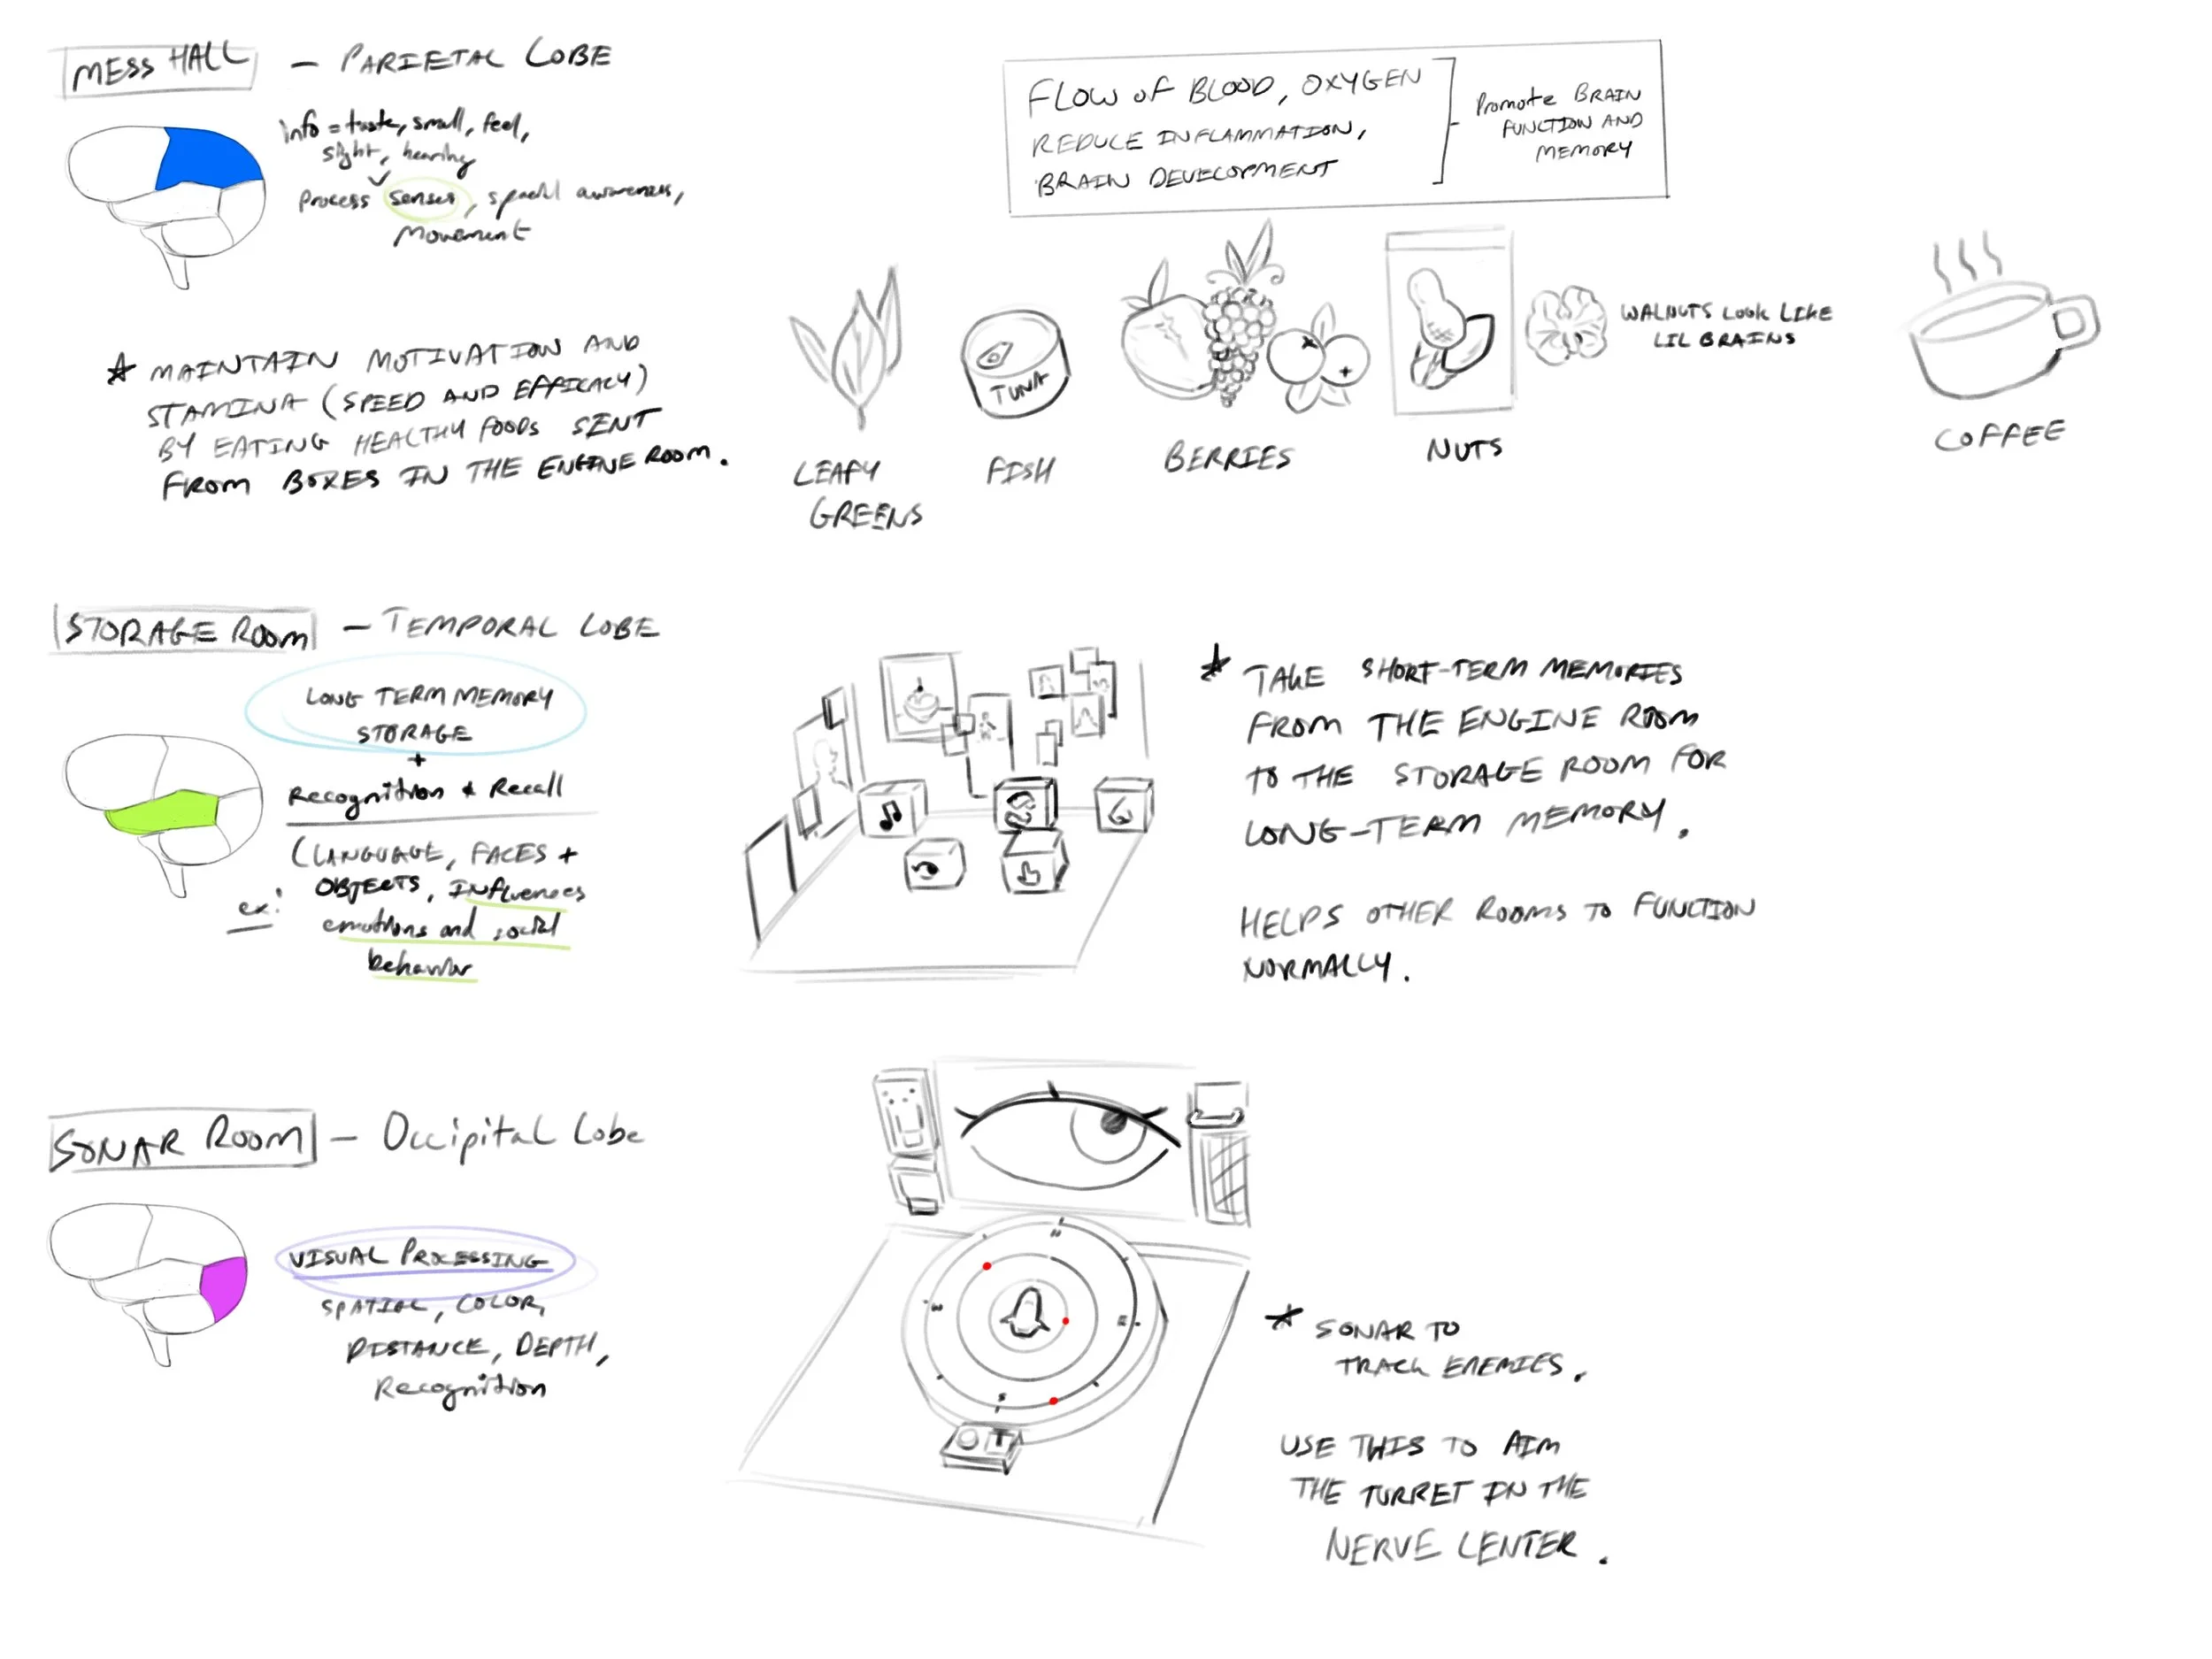 MESS HALL — PARIETAL LOBE
info = taste, smell, feel,
sight, hearing
Process senses, spacial awareness,
movement
FLOW OF BLOOD, OXYGEN
REDUCE INFLAMMATION,
BRAIN DEVELOPMENT
Promote BRAIN
FUNCTION AND
MEMORY
MAINTAIN MOTIVATION AND
STAMINA (SPEED AND EFFICACY)
BY EATING HEALTHY FOODS SENT
FROM BOXES IN THE ENGINE ROOM.
TUNA
WALNUTS LOOK LIKE
LIL BRAINS
LEAFY
GREENS
FISH
BERRIES
NUTS
COFFEE
STORAGE ROOM — TEMPORAL LOBE
LONG TERM MEMORY
STORAGE
+
Recognition & Recall
(LANGUAGE, FACES +
OBJECTS, Influences
ex:
emotions and social
behavior
TAKE SHORT-TERM MEMORIES
FROM THE ENGINE ROOM
TO THE STORAGE ROOM FOR
LONG-TERM MEMORY.
HELPS OTHER ROOMS TO FUNCTION
NORMALLY.
SONAR ROOM — Occipital Lobe
VISUAL PROCESSING
SPATIAL, COLOR,
DISTANCE, DEPTH,
Recognition
N
W
E
S
SONAR TO
TRACK ENEMIES.
USE THIS TO AIM
THE TURRET IN THE
NERVE CENTER.